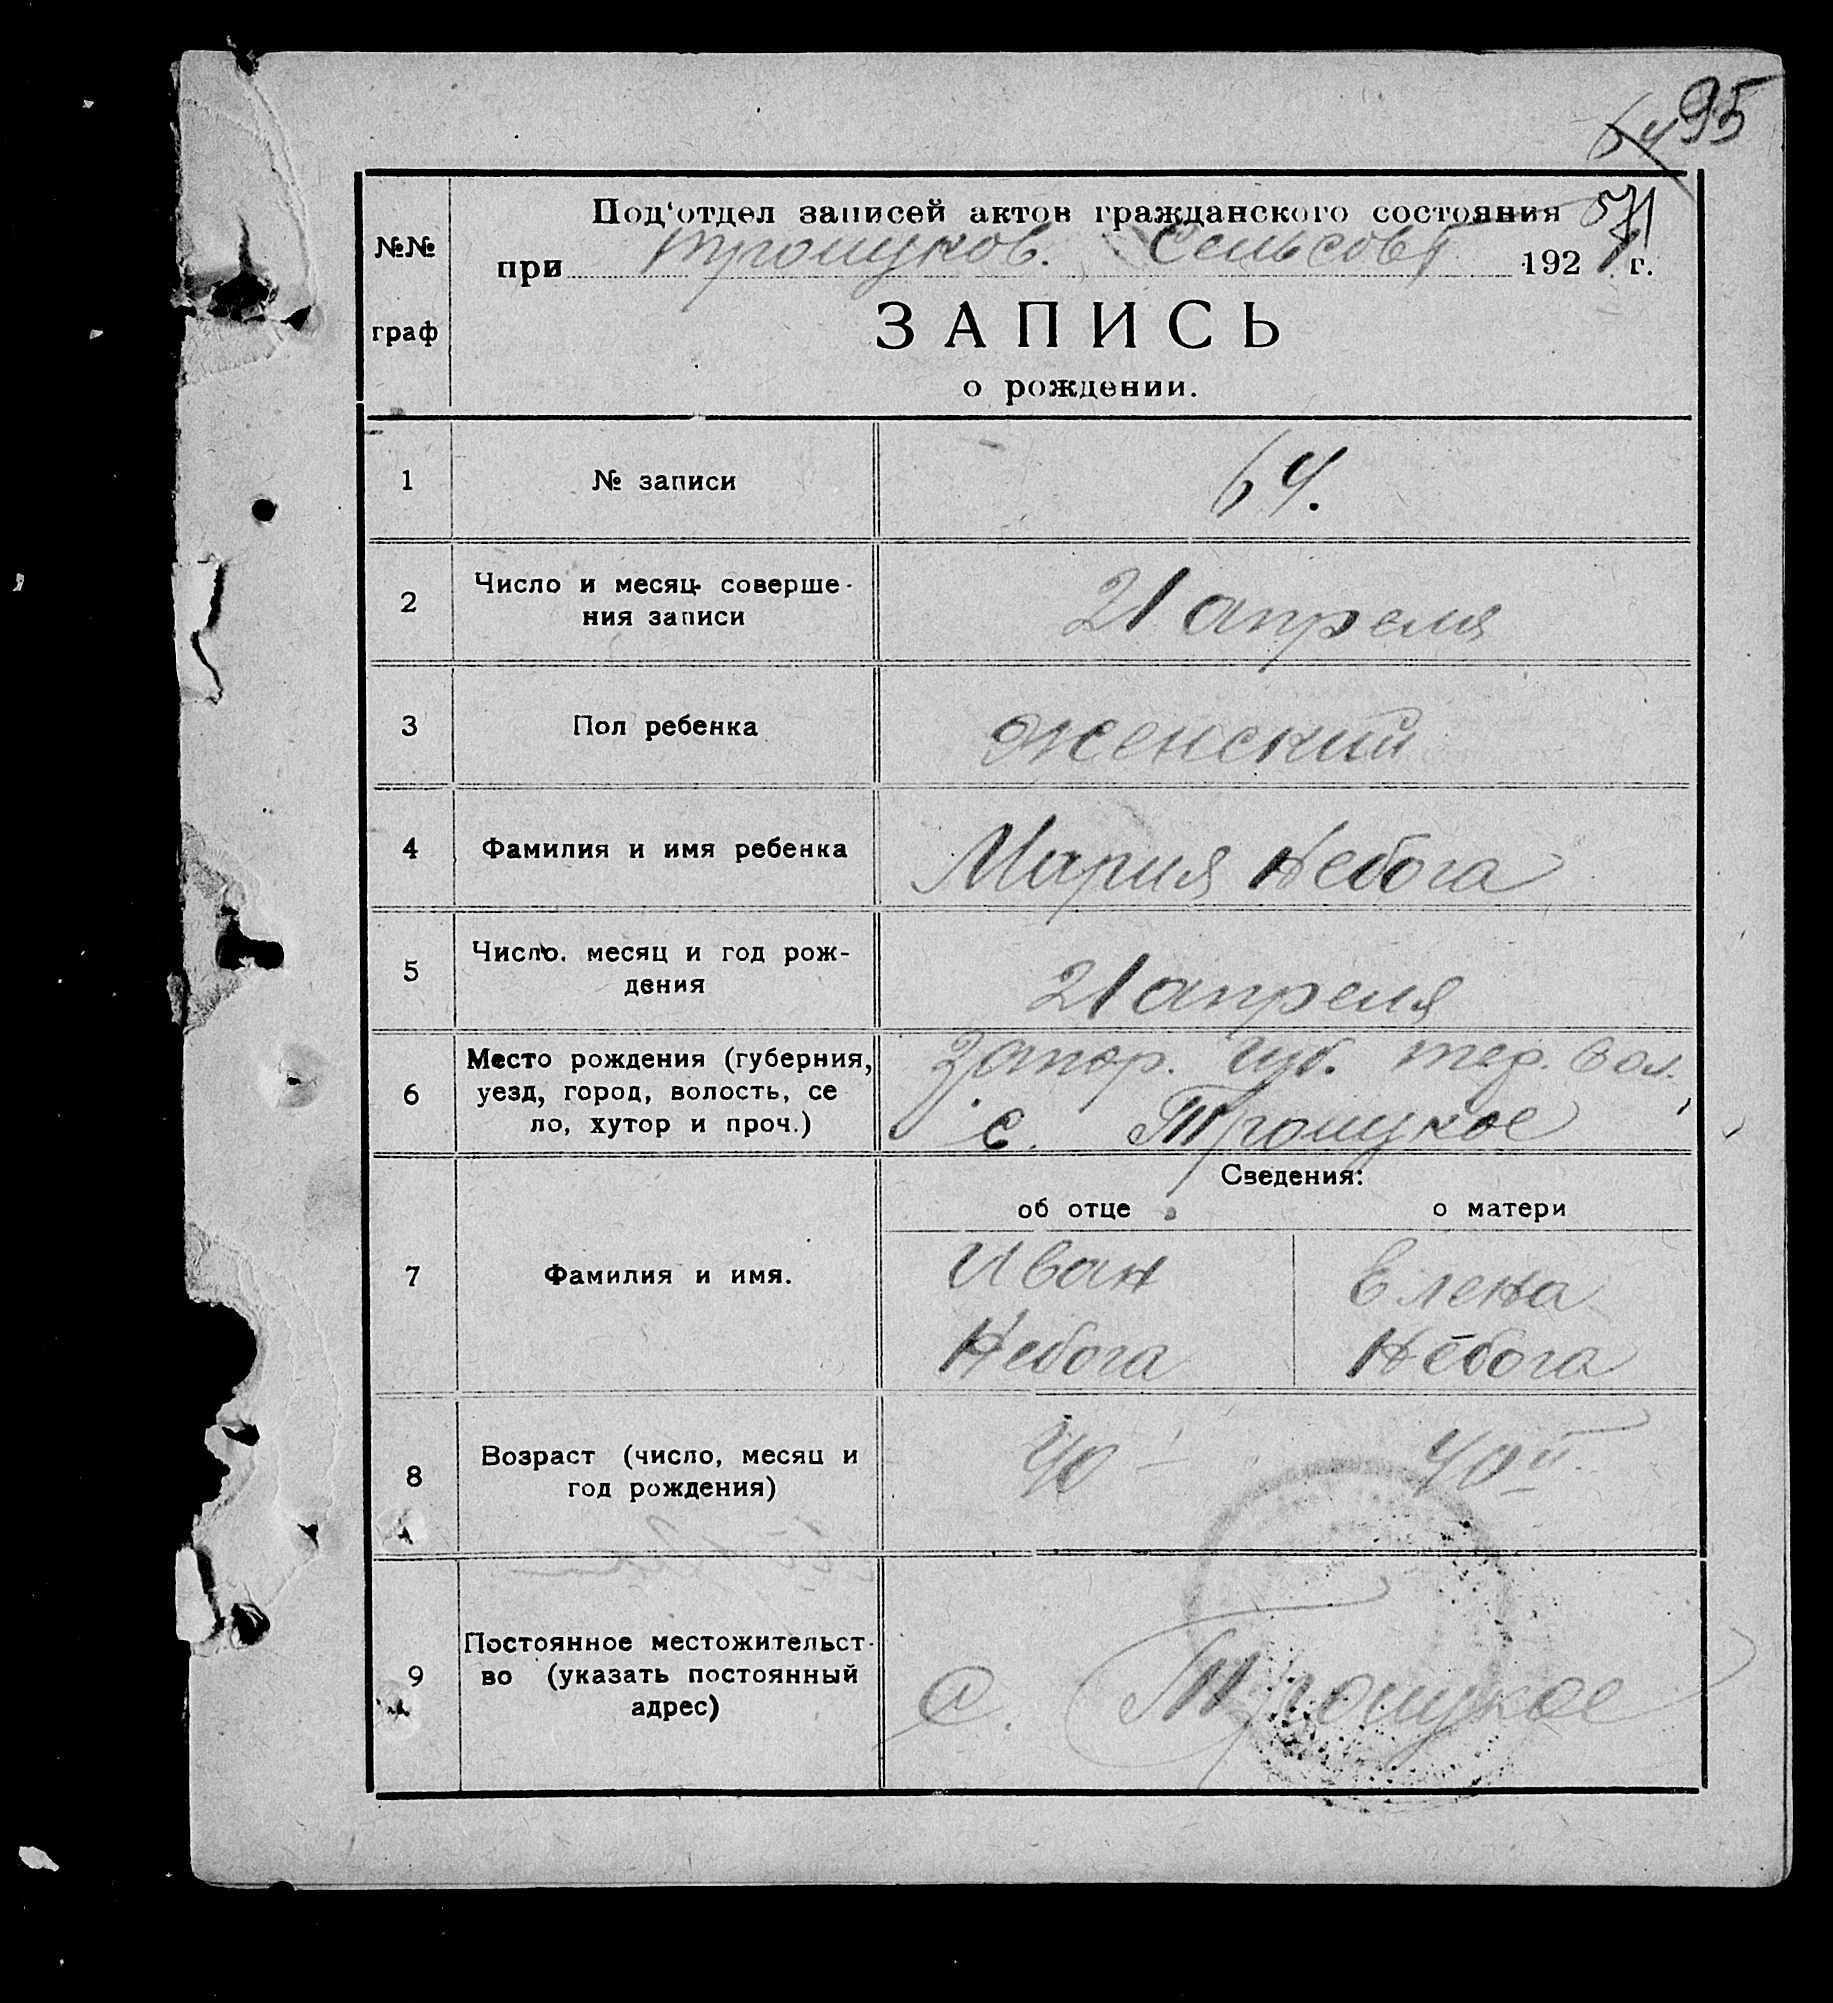 95
64
57
Под‘отдел записей актов гражданского состояния
при Троицков. Сельсовт 1921 г.
№№ граф
ЗАПИСЬ
о рождении.
1 № записи 64.
2 Число и месяц соверше-
ния записи 21 апреля
3 Пол ребенка женский
4 Фамилия и имя ребенка Мария Небога
5 Число, месяц и год рож-
дения 21 апреля
6 Место рождения (губерния, Запор. губ. тер. вол.
уезд, город, волость, се
ло, хутор и проч.) с. Троицкое
Сведения:
об отце о матери
7 Фамилия и имя. Иван Елена
Небога Небога
8 Возраст (число, месяц и 40 40
год рождения)
9 Постоянное местожительст-
во (указать постоянный с. Троицкое
адрес)